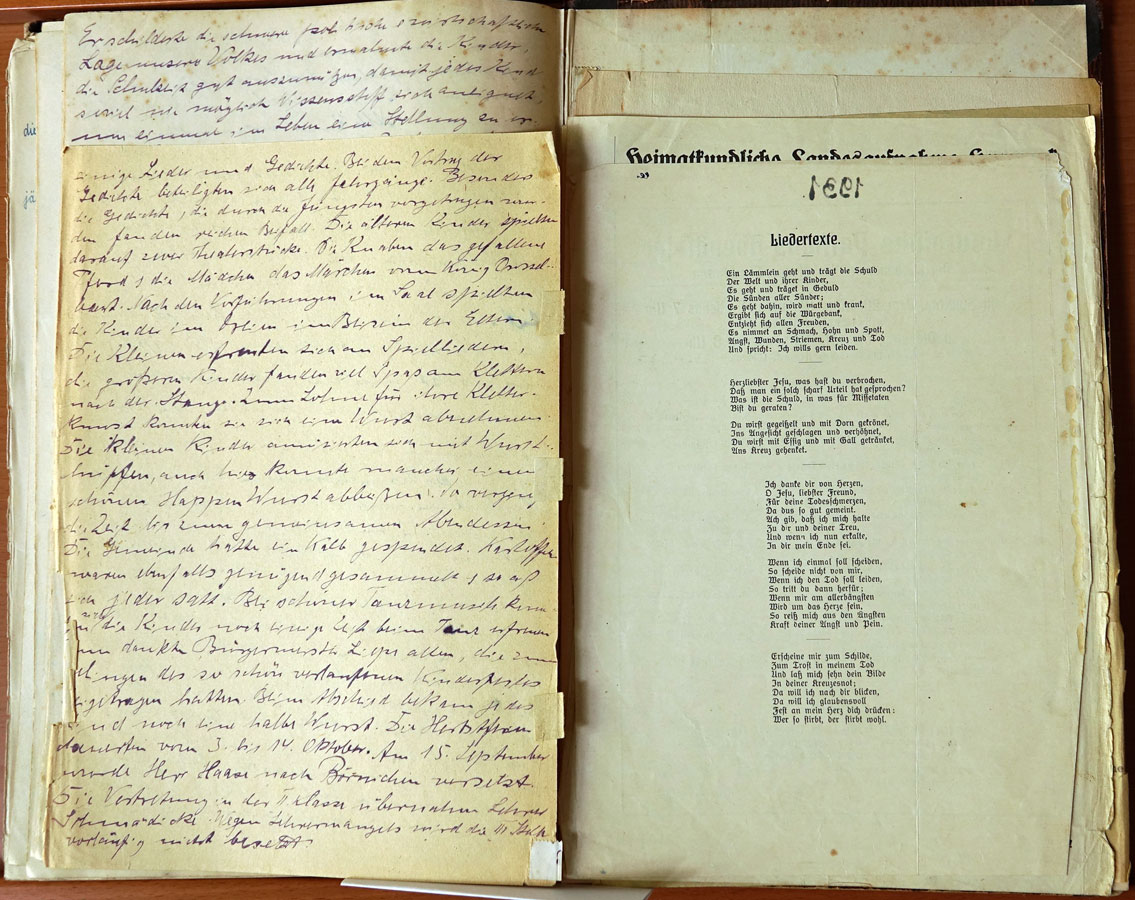 Er schilderte die schwere
Lage unseres Volkes und ermahnte die Kinder,
die Schulzeit gut auszunützen, damit jedes Kind
soviel wie möglich Wissenschaft sich aneignet,
um einmal im Leben eine Stellung zu
die
jä
einige Lieder und Gedichte. Bei dem Vortrag der
Gedichte beteiligten sich alle Jahrgänge. Besonders
die Gedichte, die durch die Jüngsten vorgetragen wur-
den fanden reichen Beifall. Die älteren Kinder spielten
darauf zwei Theaterstücke. Die Knaben das gefallene
Pferd, die Mädchen das Märchen vom König Drossel-
bart. Nach den Vorführungen im Saal spielten
die Kinder im Freien im Beisein der Eltern.
Die Kleinen erfreuten sich an Spielliedern,
die größeren Kinder fanden viel Spas am Klettern
nach der Stange. Zum Lohne für ihre Kletter-
kunst konnten sie sich eine Wurst abnehmen.
Die kleinen Kinder amüsierten sich mit Wurst-
hüpfen, auch hier konnte mancher einen
schönen Happen Wurst abbeißen. So verging
die Zeit bis zum gemeinsamen Abendessen.
Die Gemeinde hatte ein Kalb gespendet. Kartoffeln
waren ebenfalls genügend gesammelt, so aß
sich jeder satt. Bei schöner Tanzmusik konn-
die Kinder noch einige beim Tanz erfreuen
dankte Bürgermeister allen, die zum
gelingen des so schön verlaufenen Kinderfestes
beigetragen hatten. Beim Abschied bekam jedes
Kind noch eine halbe Wurst. Die Herbstferien
dauerten vom 3. bis 14. Oktober. Am 15. September
wurde Herr Haase nach Börnichen versetzt.
Die Vertretung in der Klasse übernahm Lehrer
Schmädicke. Wegen Lehrermangels wird die III Stelle
vorläufig nicht besetzt
Heimatkundliche Landesaufnahme
1931
Liedertexte.
Ein Lämmlein geht und trägt die Schuld
Der Welt und ihrer Kinder,
Es geht und träget in Geduld
Die Sünden aller Sünder;
Es geht dahin, wird matt und krank,
Ergibt sich auf die Würgebank,
Entzieht sich allen Freuden,
Es nimmet an Schmach, Hohn und Spott,
Angst, Wunden, Striemen, Kreuz und Tod
Und spricht: Ich wills gern leiden.
Herzliebster Jesu, was hast du verbrochen,
Daß man ein solch scharf Urteil hat gesprochen?
Was ist die Schuld, in was für Missetaten
Bist du geraten?
Du wirst gegeißelt und mit Dorn gekrönet,
Ins Angesicht geschlagen und verhöhnet,
Du wirst mit Essig und mit Gall getränket,
Ans Kreuz gehenket.
Ich danke dir von Herzen,
O Jesu, liebster Freund,
Für deine Todesschmerzen,
Da dus so gut gemeint.
Ach gib, daß ich mich halte
Zu dir und deiner Treu,
Und wenn ich nun erkalte,
In dir mein Ende sei.
Wenn ich einmal soll scheiden,
So scheide nicht von mir,
Wenn ich den Tod soll leiden,
So tritt du dann herfür;
Wenn mir am allerbängsten
Wird um das Herze sein,
So reiß mich aus den Ängsten
Kraft deiner Angst und Pein.
Erscheine mir zum Schilde,
Zum Trost in meinem Tod
Und laß mich sehn dein Bilde
In deiner Kreuzesnot;
Da will ich nach dir blicken,
Da will ich glaubensvoll
Fest an mein Herz dich drücken:
Wer so stirbt, der stirbt wohl.